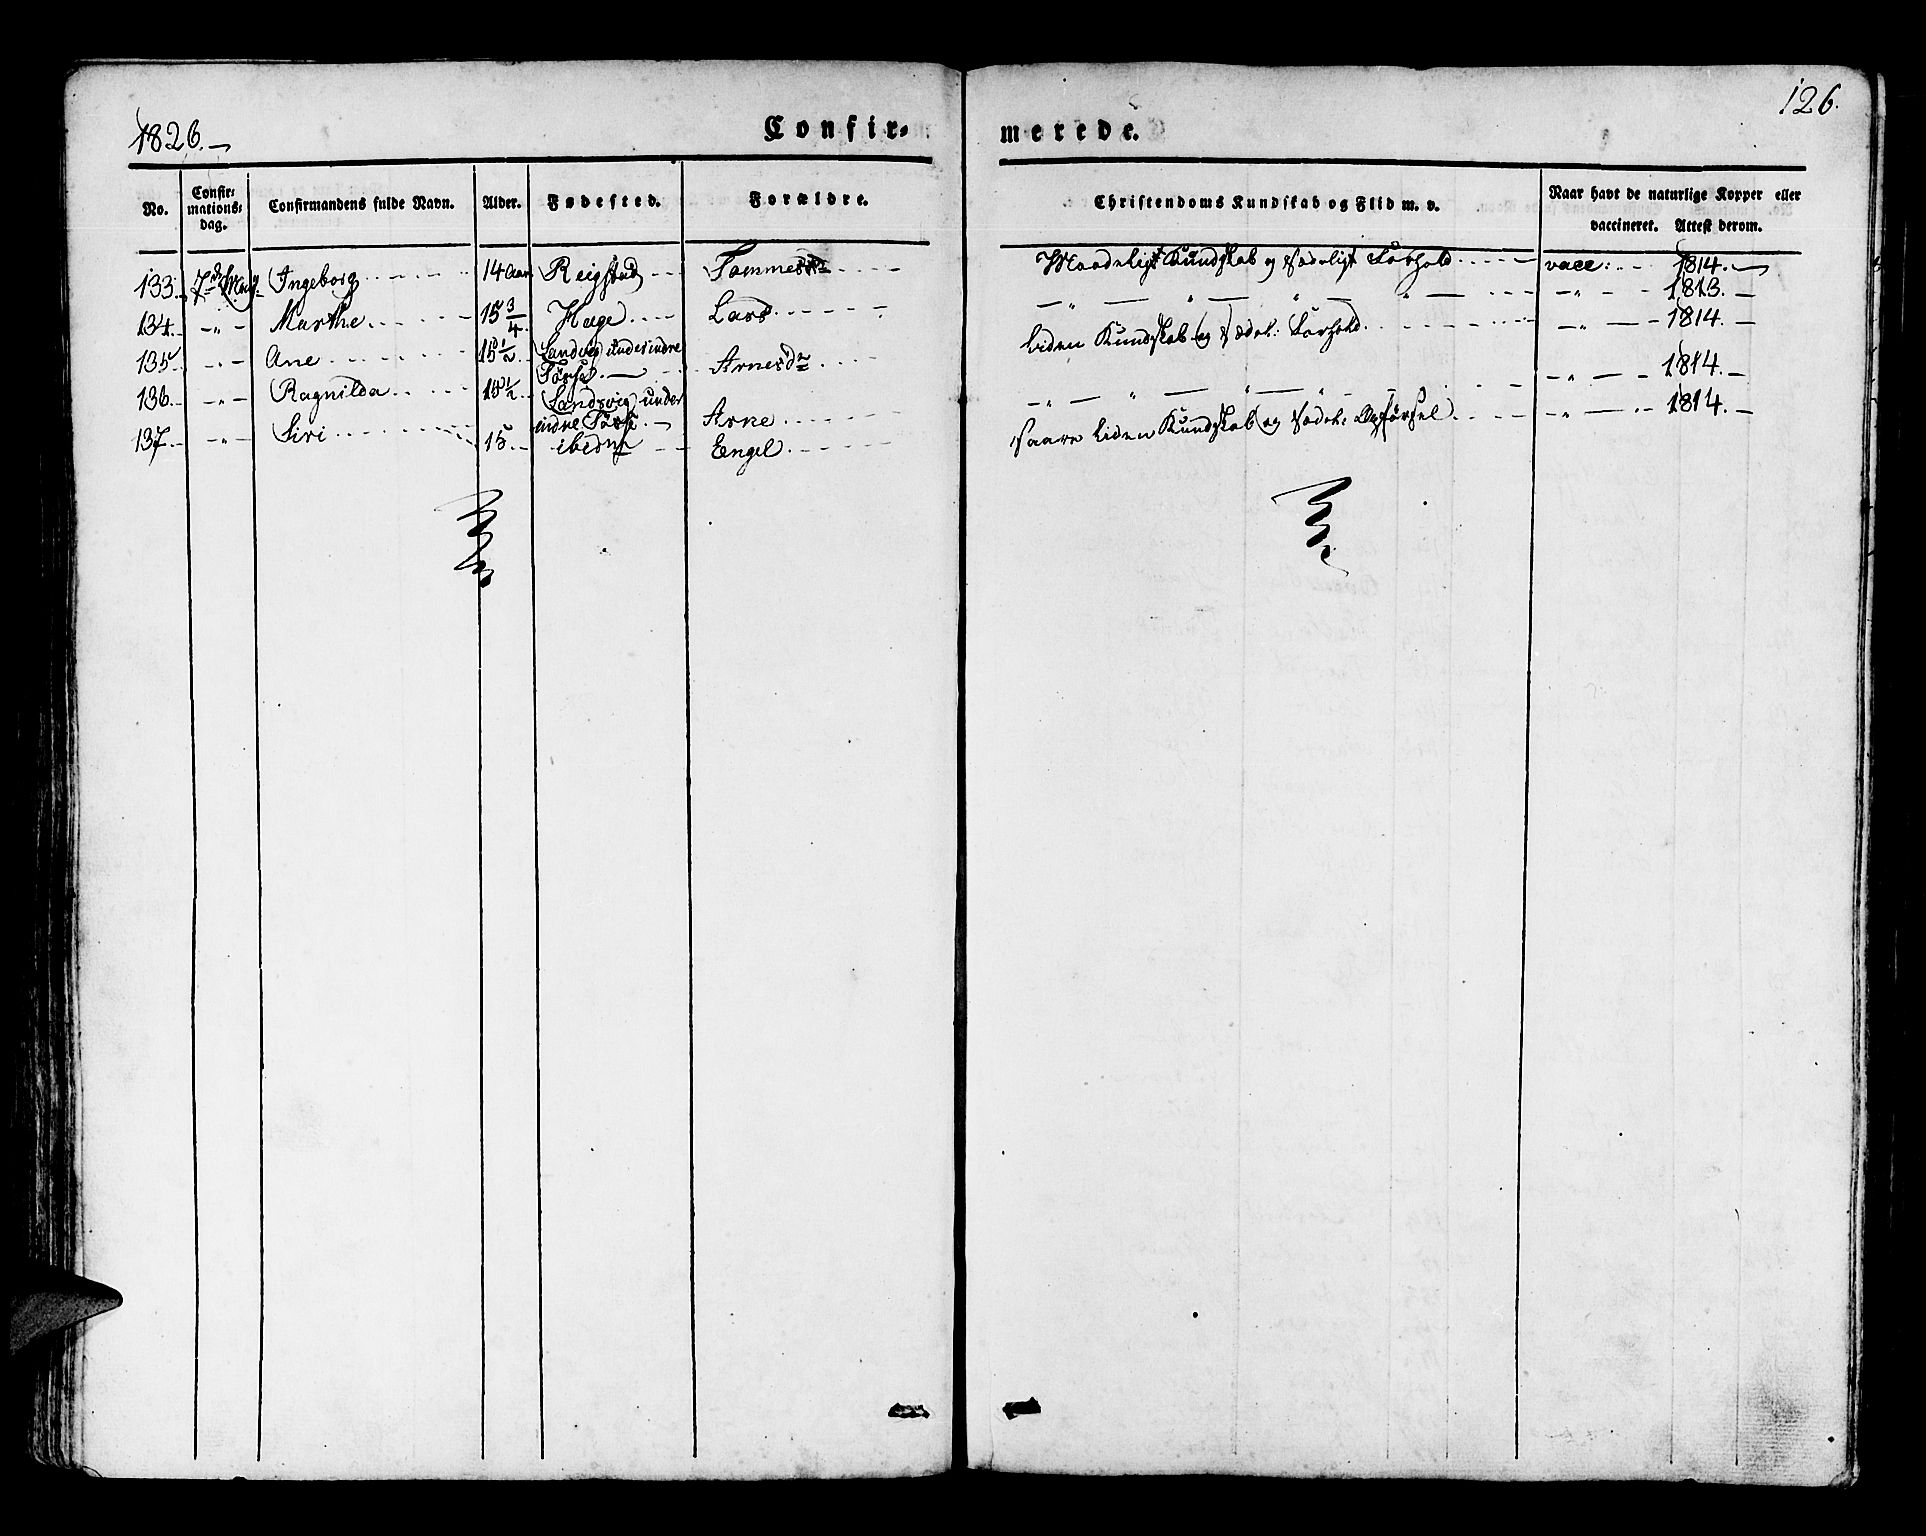 1826.
126.
Confirmerede.
No.
Confirmationsdag.
Confirmandens fulde Navn.
Alder.
Fødested.
Forældre.
Christendoms Kundskab og Flid m. v.
Naar havt de naturlige Kopper eller vaccineret. Attest derom.
133. 7de May. Ingeborg 14 Aar Reigstad Maadeligt Kundskab og sædeligt Forhold vacc: 1814.
134. - " - Marthe 15 3/4 Hage Lars - " - " - " - " - - " - 1813.
135. - " - Ane 15 1/2 Sandvig under indre Arnesdr liden Kundskab og sædel: Forhold - " - 1814.
136. - " - Ragnilda 15 1/2 Sandvig under indre Arne - " - " - " - - " - 1814.
137. - " - Siri 15 ibidm Engel saare liden Kundskab og sædel: Opførsel - " - 1814.